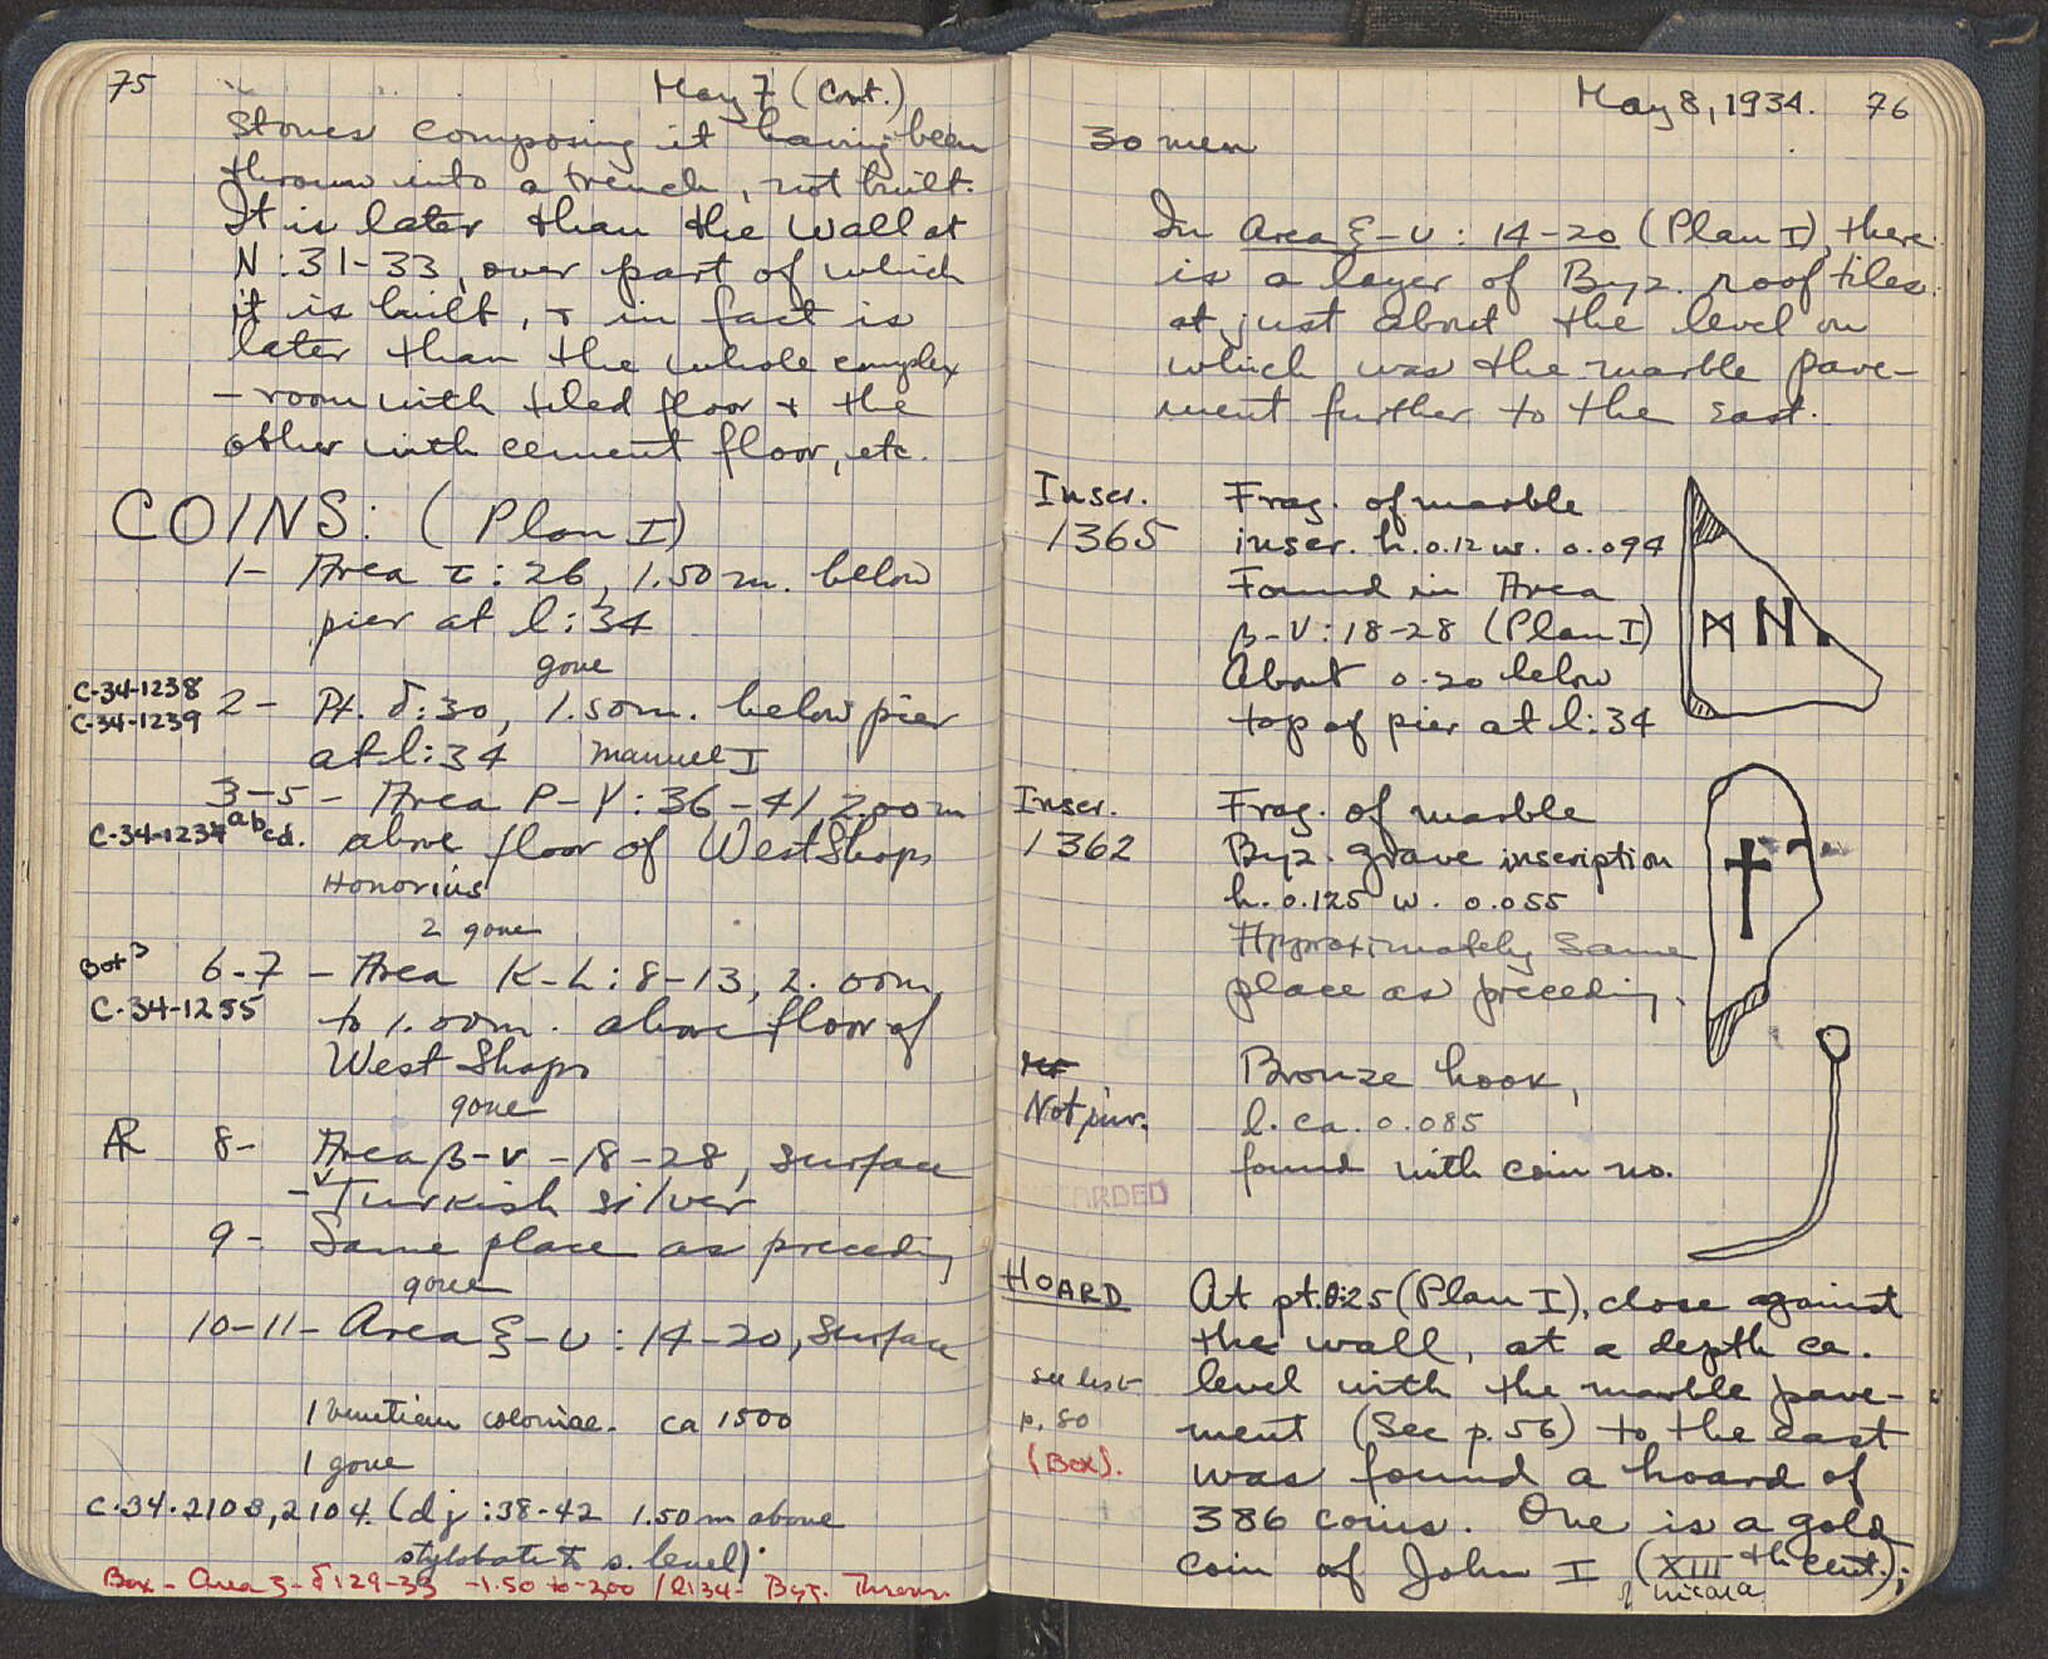 75
May 7 (Cont.)
Stones composing it having been
thrown into a trench, not built.
It is later than the wall at
N:31-33, over part of which
it is built, + in fact is
later than the whole complex
- room with tiled floor + the
other with cement floor, etc.
COINS: (Plan I)
1- Area τ:26, 1.50 m. below
pier at l:34
gone
C-34-1238
C-34-1239
2- Pt. δ:30, 1.50m. below pier
at l:34 Manuel I
3-5- Area P-Y:36-41, 2.00m
C-34-1237 abcd. above floor of West Shops
Honorius
2 gone
Box 3
6-7 - Area K-L:8-13, 2.00m.
C-34-1255
to 1.00m. above floor of
West Shops
gone
AR 8- Area β-ν-18-28, surface
- Turkish silver
9- Same place as preceding
gone
10-11- Area ξ-υ:14-20, surface
1 Venetian coloniae. ca 1500
1 gone
C-34-2103, 2104. (dj:38-42 1.50m above
stylobate s. level)
Box - Area 3-δ:29-33 -1.50 to -2.00 / l:34 - Byz.
May 8, 1934. 76
30 men
In Area ξ-υ:14-20 (Plan I), there
is a layer of Byz. roof tiles
at just about the level on
which was the marble pave-
ment further to the east.
Inscr. 1365
Frag. of marble
inscr. h. 0.12 w. 0.094
Found in Area
β-ν:18-28 (Plan I)
About 0.20 below
top of pier at l:34
Inscr. 1362
Frag. of marble
Byz. grave inscription
h. 0.125 w. 0.055
Approximately same
place as preceding.
Not inv.
Bronze hook,
l. ca. 0.085
found with coin no.
ARDED
HOARD
At pt. θ:25 (Plan I), close against
the wall, at a depth ca.
see list
level with the marble pave-
p. 80
ment (See p. 56) to the east
(Box).
was found a hoard of
386 coins. One is a gold
coin of John I (XIIIth cent.);
of Nicaea